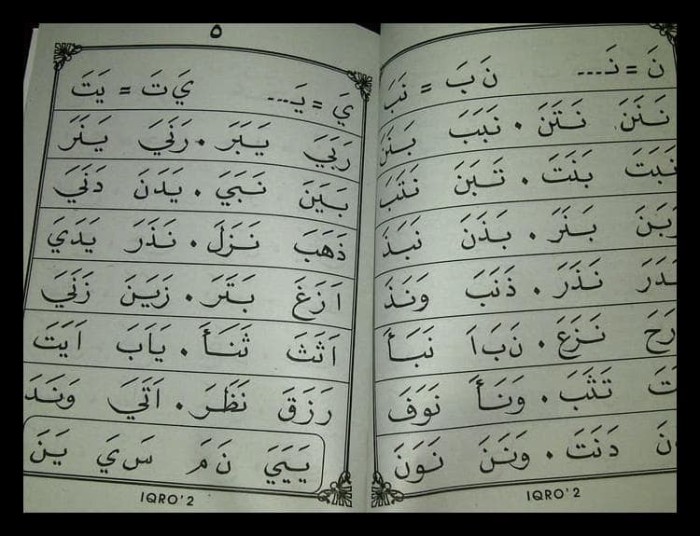 نَ = نَـ...  نَ بَ = نَبَ
نَنَنَ نَتَنَ . نَبَبَ بَنَنَ
نَبَتَ بَنَتَ . تَبَنَ نَتَبَ
بَنَرَ . بَذَنَ نَبَذَ
نَذَرَ . ذَنَبَ وَنَذَ
نَزَعَ . نَ بَ اَ نَبَأَ
تَثَبَ . وَنَأَ نَوَفَ
دَنَتَ . وَنَنَ نَوَنَ
IQRO'2
٥
يَ = يَـ...  يَ تَ = يَتَ
رَبَيَ يَبَرَ . رَنَيَ يَنَرَ
بَيَنَ نَبَيَ . يَدَنَ دَنَيَ
ذَهَبَ نَزَلَ . نَذَرَ يَدَيَ
اَزَغَ بَتَرَ . زَيَنَ زَنَيَ
اَثَثَ ثَنَأَ . يَابَ اَيَتَ
رَزَقَ نَظَرَ . اَتَيَ وَنَدَ
يَيَيَ نَ مَ سَ يَ يَنَ
IQRO'2